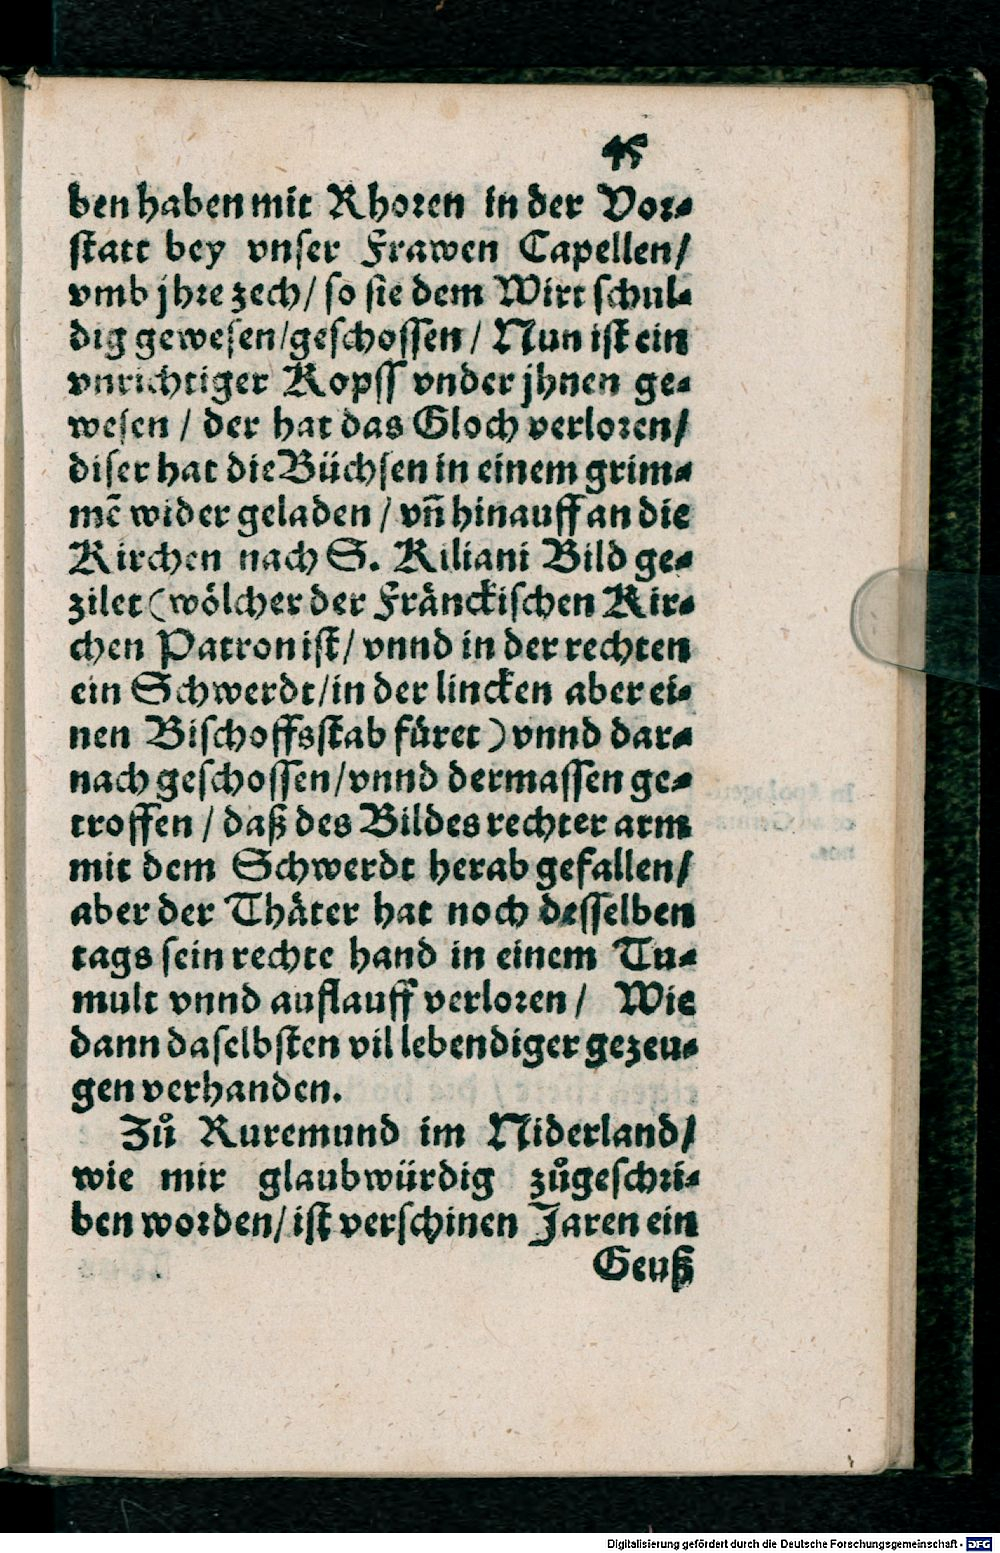 45
ben haben mit Rhoren in der Vor-
statt bey vnser Frawen Capellen/
vmb jhre zech/ so sie dem Wirt schul-
dig gewesen/geschossen/ Nun ist ein
vnrichtiger Kopff vnder jhnen ge-
wesen / der hat das Gloch verloren/
diser hat die Büchsen in einem grim-
mẽ wider geladen / vñ hinauff an die
Kirchen nach S. Kiliani Bild ge-
zilet (wölcher der Fränckischen Kir-
chen Patron ist/ vnnd in der rechten
ein Schwerdt/in der lincken aber ei-
nen Bischoffsstab füret) vnnd dar-
nach geschossen/vnnd dermassen ge-
troffen / daß des Bildes rechter arm
mit dem Schwerdt herab gefallen/
aber der Thäter hat noch desselben
tags sein rechte hand in einem Tu-
mult vnnd auflauff verloren / Wie
dann daselbsten vil lebendiger gezeu-
gen verhanden.
Zů Ruremund im Niderland/
wie mir glaubwürdig zůgeschri-
ben worden/ ist verschinen Jaren ein
Geuß
Digitalisierung gefördert durch die Deutsche Forschungsgemeinschaft - DFG